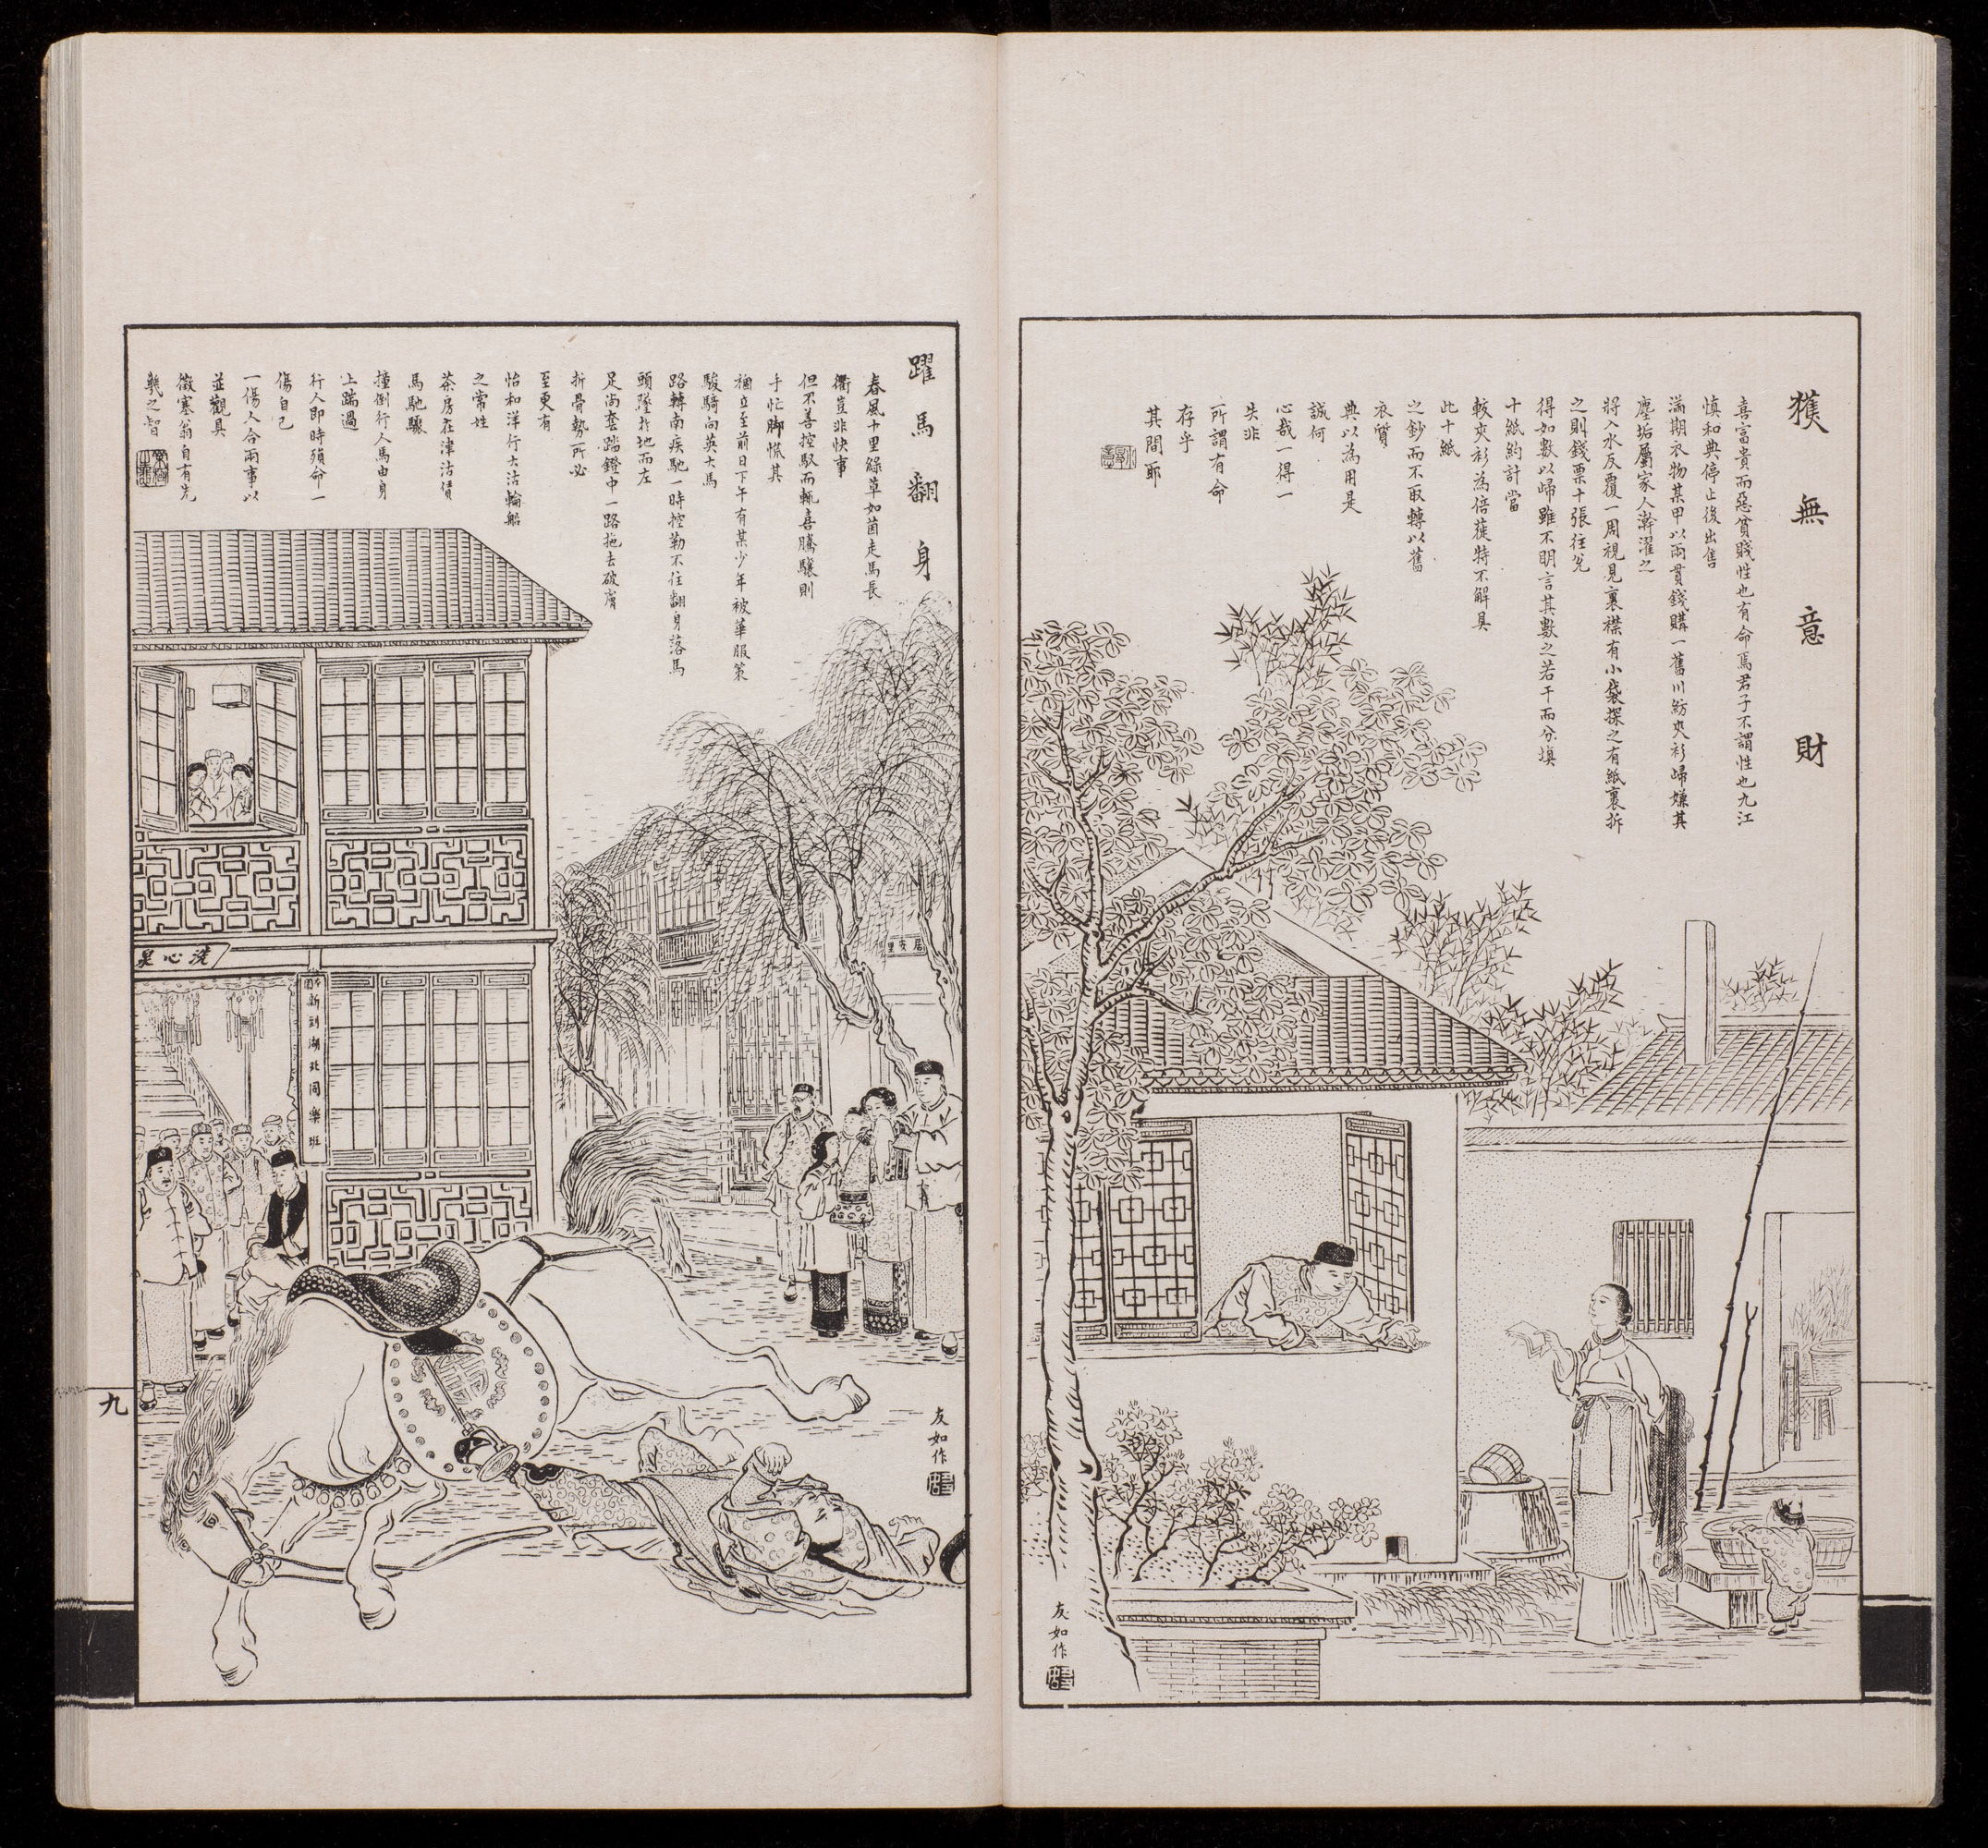 獲無意財
喜富貴而惡貧賤性也有命焉君子不謂性也九江
慎和典停止後出售
滿期衣物某甲以兩貫錢購一舊川紡夾衫歸嫌其
塵垢屬家人澣濯之
將入水反覆一周視見裏襟有小袋探之有紙裹拆
之則錢票十張往兌
得如數以歸雖不明言其數之若干而分填
十紙約計當
較夾衫為倍蓰特不解具
此十紙
之鈔而不取轉以舊
衣質
典以為用是
誠何
心哉一得一
失非
所謂有命
存乎
其間耶
友如作
躍馬翻身
春風十里綠草如茵走馬長
衢豈非快事
但不善控馭而輒喜騰驤則
手忙脚慌其
禍立至前日下午有某少年被華服策
駿騎向英大馬
路轉南疾馳一時控勒不住翻身落馬
頭隨扵地而左
足尚套踏鐙中一路拖去破膚
折骨勢所必
至更有
怡和洋行大沽輪船
之常姓
茶房在津沽僓
馬馳驟
撞倒行人馬由身
上踹過
行人即時殞命一
傷自己
一傷人合兩事以
並觀具
徵塞翁自有先
幾之智
洗心泉
新到湖北同樂班
居安里
友如作
九